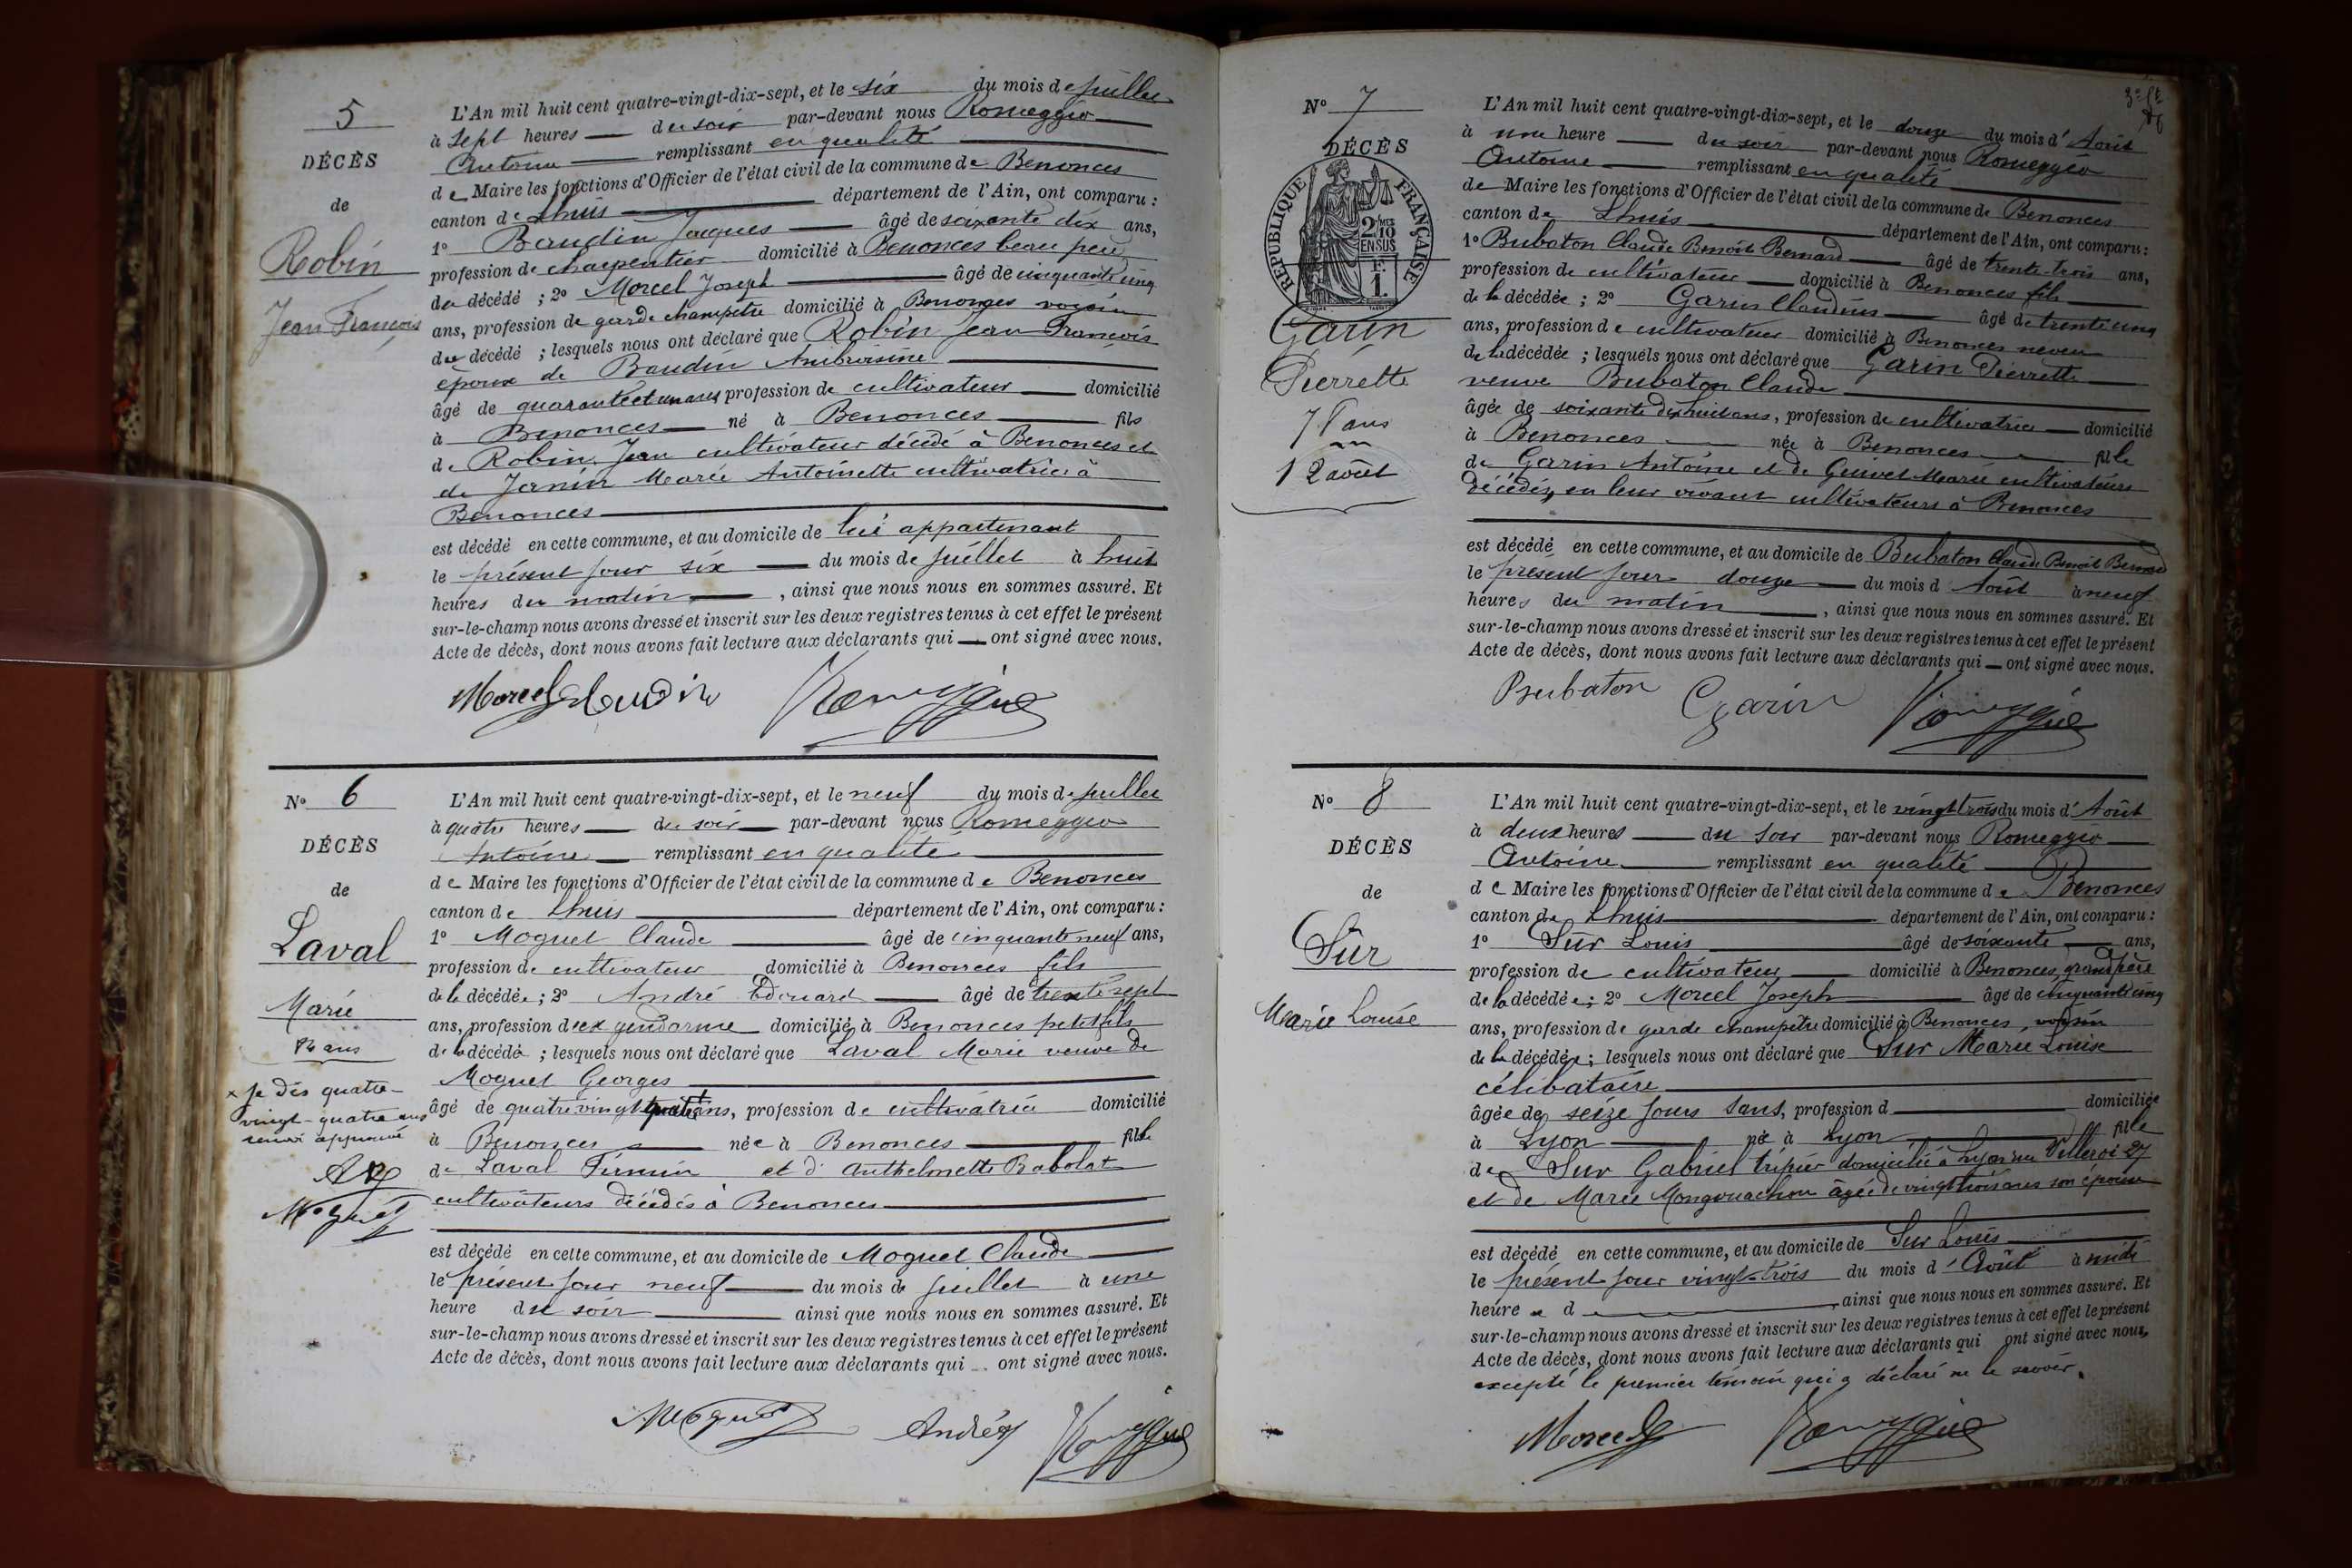 5
DÉCÈS
de
Robin
Jean François
L'An mil huit cent quatre-vingt-dix-sept, et le six du mois de juillet
à sept heures du soir par-devant nous Romeggio
Antoine remplissant en qualité
de Maire les fonctions d'Officier de l'état civil de la commune de Benonces
canton de Lhuis département de l'Ain, ont comparu :
1º Baudin Jacques âgé de soixante dix ans,
profession de charpentier domicilié à Benonces beau père
du décédé ; 2º Morcel Joseph âgé de cinquante cinq
ans, profession de garde champêtre domicilié à Benonces voisin
du décédé ; lesquels nous ont déclaré que Robin Jean François
époux de Baudin Ambroisine
âgé de quarante et un ans profession de cultivateur domicilié
à Benonces né à Benonces fils
de Robin Jean cultivateur décédé à Benonces et
de Janin Marie Antoinette cultivatrice à
Benonces
est décédé en cette commune, et au domicile de lui appartenant
le présent jour six du mois de juillet à huit
heures du matin, ainsi que nous nous en sommes assuré. Et
sur-le-champ nous avons dressé et inscrit sur les deux registres tenus à cet effet le présent
Acte de décès, dont nous avons fait lecture aux déclarants qui ont signé avec nous.
Morcel Baudin Romeggio
Nº 6
DÉCÈS
de
Laval
Marie
84 ans
x Je dis quatre-
vingt-quatre ans
renvoi approuvé
AR
Moguet
L'An mil huit cent quatre-vingt-dix-sept, et le neuf du mois de juillet
à quatre heures du soir par-devant nous Romeggio
Antoine remplissant en qualité
de Maire les fonctions d'Officier de l'état civil de la commune de Benonces
canton de Lhuis département de l'Ain, ont comparu :
1º Moguet Claude âgé de cinquante neuf ans,
profession de cultivateur domicilié à Benonces fils
de la décédée ; 2º André Edouard âgé de trente sept
ans, profession d'ex gendarme domicilié à Benonces petit fils
de la décédé ; lesquels nous ont déclaré que Laval Marie veuve de
Moguet Georges
âgé de quatre vingt quatre ans, profession de cultivatrice domicilié
à Benonces née à Benonces fille
de Laval Firmin et d'Anthelmette Babolat
cultivateurs décédés à Benonces
est décédé en cette commune, et au domicile de Moguet Claude
le présent jour neuf du mois de juillet à une
heure du soir ainsi que nous nous en sommes assuré. Et
sur-le-champ nous avons dressé et inscrit sur les deux registres tenus à cet effet le présent
Acte de décès, dont nous avons fait lecture aux déclarants qui ont signé avec nous.
Moguet André Romeggio
Nº 7
DÉCÈS
RÉPUBLIQUE FRANÇAISE
2/10
EN SUS
1
Garin
Pierrette
78 ans
12 août
L'An mil huit cent quatre-vingt-dix-sept, et le douze du mois d'Août
à une heure du soir par-devant nous Romeggio
Antoine remplissant en qualité
de Maire les fonctions d'Officier de l'état civil de la commune de Benonces
canton de Lhuis département de l'Ain, ont comparu :
1º Bubaton Claude Benoît Bernard âgé de trente-trois ans,
profession de cultivateur domicilié à Benonces fils
de la décédée ; 2º Garin Claudius âgé de trente cinq
ans, profession de cultivateur domicilié à Benonces neveu
de la décédée ; lesquels nous ont déclaré que Garin Pierrette
veuve Bubaton Claude
âgée de soixante dix huit ans, profession de cultivatrice domicilié
à Benonces née à Benonces fille
de Garin Antoine et de Guivet Marie cultivateurs
décédés, en leur vivant cultivateurs à Benonces
est décédé en cette commune, et au domicile de Bubaton Claude Benoît Bernard
le présent jour douze du mois d'Août à neuf
heures du matin, ainsi que nous nous en sommes assuré. Et
sur-le-champ nous avons dressé et inscrit sur les deux registres tenus à cet effet le présent
Acte de décès, dont nous avons fait lecture aux déclarants qui ont signé avec nous.
Bubaton Garin Romeggio
Nº 8
DÉCÈS
de
Sûr
Marie Louise
L'An mil huit cent quatre-vingt-dix-sept, et le vingt trois du mois d'Août
à deux heures du soir par-devant nous Romeggio
Antoine remplissant en qualité
de Maire les fonctions d'Officier de l'état civil de la commune de Benonces
canton de Lhuis département de l'Ain, ont comparu :
1º Sûr Louis âgé de soixante ans,
profession de cultivateur domicilié à Benonces, grand père
de la décédée ; 2º Morcel Joseph âgé de cinquante cinq
ans, profession de garde champêtre domicilié à Benonces, voisin
de la décédée ; lesquels nous ont déclaré que Sur Marie Louise
célibataire
âgée de seize jours sans, profession d domiciliée
à Lyon née à Lyon fille
de Sur Gabriel tripier domicilié à Lyon rue Villeroi 27
et de Marie âgée de vingt trois ans son épouse
est décédé en cette commune, et au domicile de Sur Louis
le présent jour vingt-trois du mois d'Août à midi
heure d, ainsi que nous nous en sommes assuré. Et
sur-le-champ nous avons dressé et inscrit sur les deux registres tenus à cet effet le présent
Acte de décès, dont nous avons fait lecture aux déclarants qui ont signé avec nous,
excepté le premier témoin qui a déclaré ne le savoir.
Morcel Romeggio